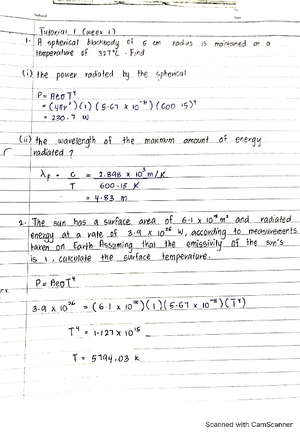 Tutorial 1 (week 1)
1. A spherical blackbody of 5 cm radius is maintained at a
temperature of 327°C. Find
(i) the power radiated by the spherical
P = AeσT⁴
= (4πr²)(1)(5.67 × 10⁻⁸)(600.15)⁴
= 230.7 W
(ii) the wavelength of the maximum amount of energy
radiated ?
λp = C = 2.898 × 10³ m/K
T 600.15 K
= 4.83 m
2. The sun has a surface area of 6.1 × 10¹⁸ m² and radiated
energy at a rate of 3.9 × 10²⁶ W, according to measurements
taken on Earth. Assuming that the emissivity of the sun's
is 1, calculate the surface temperature.
P = AeσT⁴
3.9 × 10²⁶ = (6.1 × 10¹⁸)(1)(5.67 × 10⁻⁸)(T⁴)
T⁴ = 1.127 × 10¹⁵
T = 5794.03 K
Scanned with CamScanner